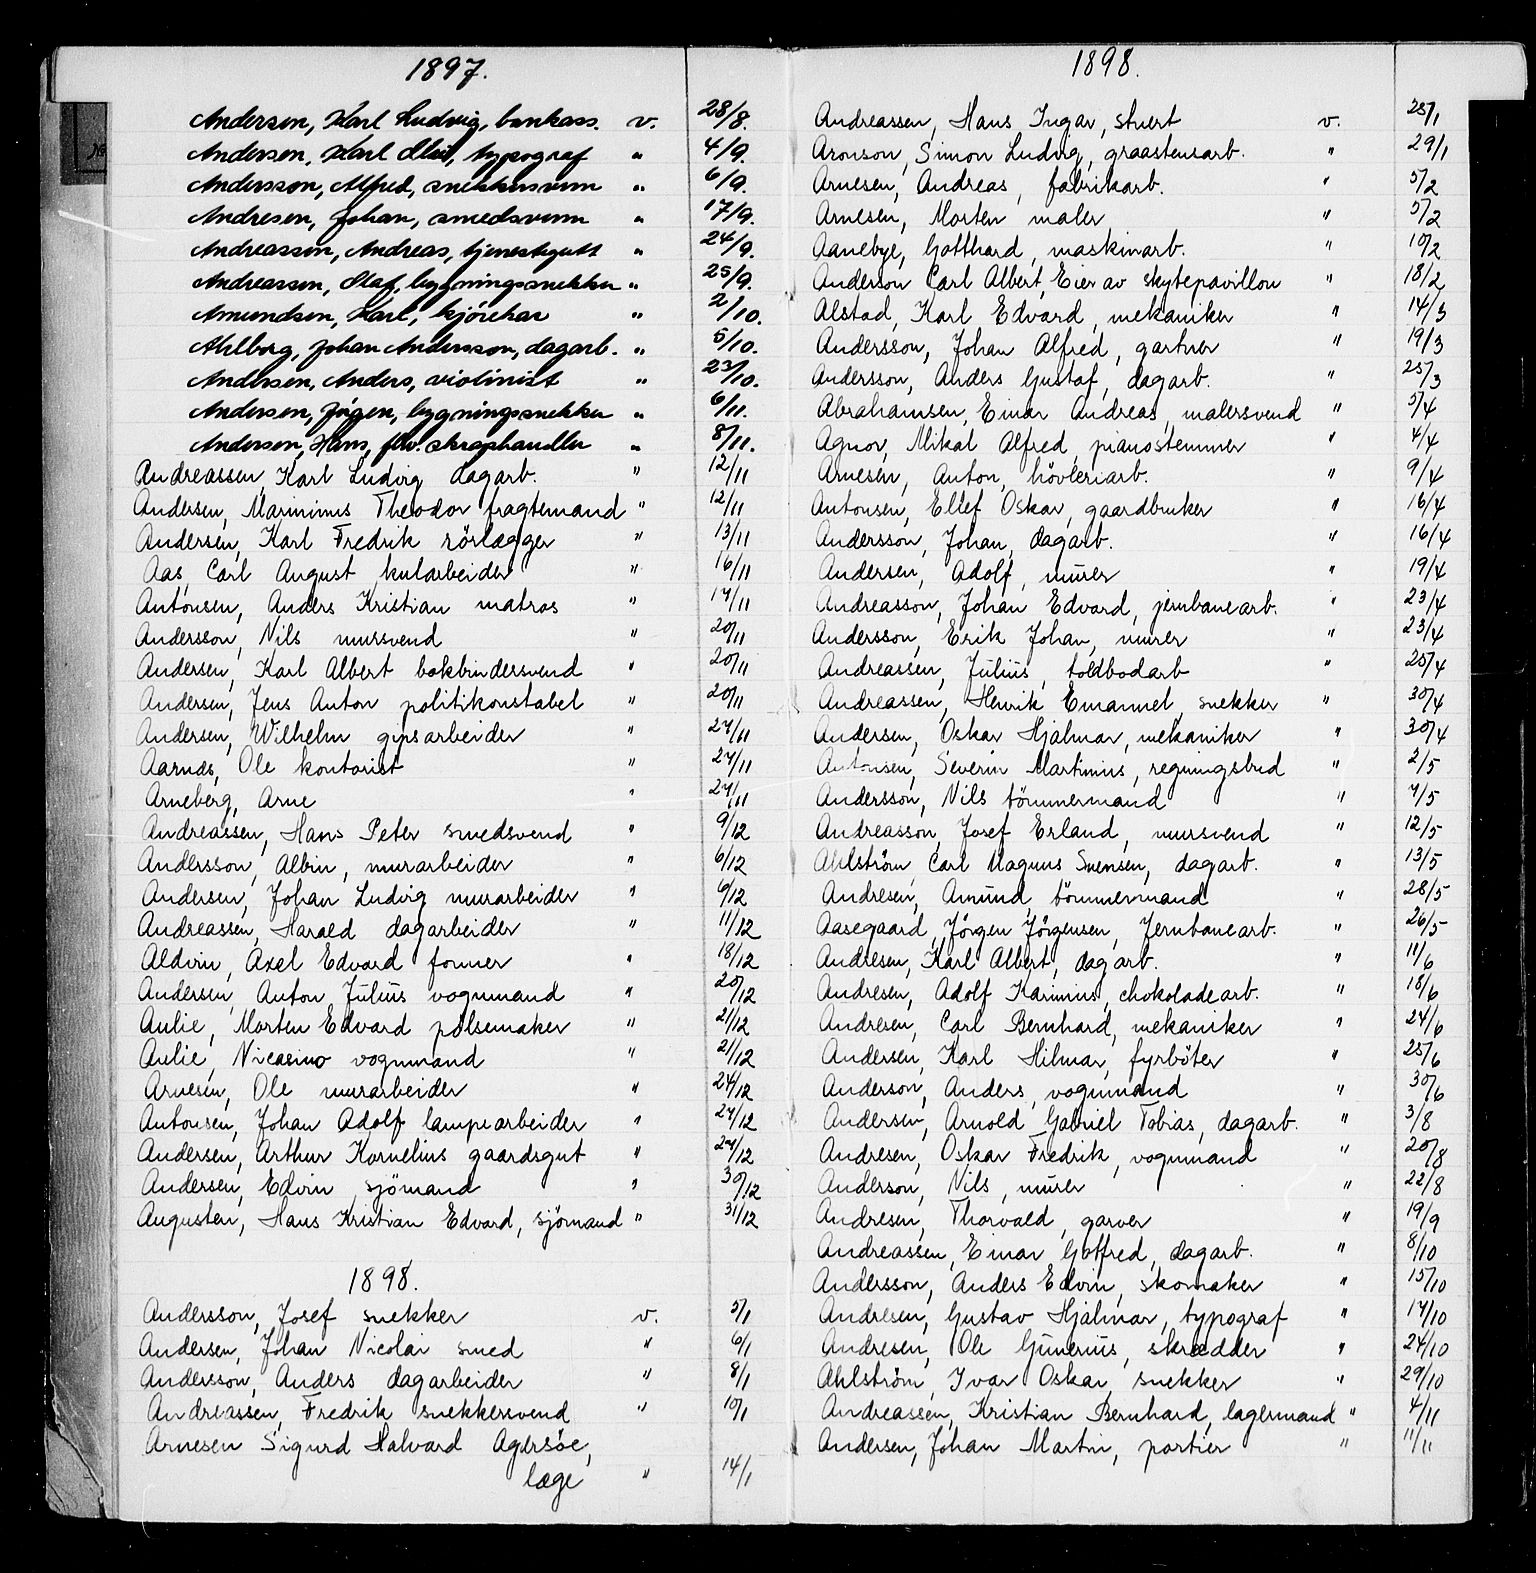 1897.
Andersen, Karl Ludvig, bankass. v. 28/8.
Andersen, Karl Olai, typograf " 4/9.
Andersson, Alfred, snekkersvenn " 6/9.
Andresen, Johan, smedsvenn " 17/9.
Andreassen, Andreas, tjenestegutt " 24/9.
Andreassen, Olaf, bygningssnekker " 25/9.
Amundsen, Karl, kjörekar " 2/10.
Ahlborg, Johan Andersson, dagarb. " 5/10.
Andersen, Anders, violinist " 23/10.
Andersen, Jögen, bygningssnekker " 6/11.
Andersen, Hans, fhv. skraphandler " 8/11.
Andreassen, Karl Ludvig dagarb. " 12/11
Andersen, Marinius Theodor fragtemand " 12/11
Andersen, Karl Fredrik rörlægger " 13/11
Aas, Carl August kularbeider " 16/11
Antonsen, Anders Kristian matros " 17/11
Andersson, Nils mursvend " 20/11
Andersen, Karl Albert bokbindersvend " 20/11
Andersen, Jens Anton politikonstabel " 20/11
Andersen, Wilhelm gipsarbeider " 27/11
Aarnæs, Ole kontorist " 27/11
Arneberg, Arne " 27/11
Andreassen, Hans Peter smedsvend " 9/12
Andersson, Albin, murarbeider " 6/12
Andersen, Johan Ludvig murarbeider " 6/12
Andreassen, Harald dagarbeider " 11/12
Aldvin, Axel Edvard former " 18/12
Andersen, Anton Julius vognmand " 20/12
Aulie, Morten Edvard pölsemaker " 21/12
Aulie, Nicasino vognmand " 21/12
Arnesen, Ole murarbeider " 24/12
Antonsen, Johan Adolf lampearbeider " 27/12
Andersen, Arthur Kornelius gaardsgut " 27/12
Andersen, Edvin sjömand " 30/12
Augusten, Hans Kristian Edvard, sjömand " 31/12
1898.
Andersson, Josef snekker v. 5/1
Andersen, Johan Nicolai smed " 6/1
Andersson, Anders dagarbeider " 8/1
Andreassen, Fredrik snekkersvend " 10/1
Arnesen Sigurd Halvard Agersöe,
læge " 14/1
1898.
Andreassen, Hans Ingar, stuert v. 25/1
Aronson, Simon Ludvig, graastensarb. " 29/1
Arnesen, Andreas, fabrikarb. " 5/2
Arnesen, Morten maler " 5/2
Aanebye, Gotthard, maskinarb. " 10/2
Anderson Carl Albert, Eier av skytepavillon " 18/2
Alstad, Karl Edvard, mekaniker " 14/3
Andersson, Johan Alfred, gartner " 19/3
Andersson, Anders Gustaf, dagarb. " 25/3
Abrahamsen, Einar Andreas, malersvend " 5/4
Agnor, Mikal Alfred, pianostemmer " 4/4
Arnesen, Anton, hövleriarb. " 9/4
Antonsen, Ellef Oskar, gaardbruker " 16/4
Andersson, Johan, dagarb. " 16/4
Andersen, Adolf, murer " 19/4
Andreasson, Johan Edvard, jernbanearb. " 23/4
Andersson, Erik Johan, murer " 23/4
Andreassen, Julius, toldbodarb " 25/4
Andreassen, Henrik Emanuel, snekker " 30/4
Andersen, Oskar Hjalmar, mekaniker " 30/4
Antonsen, Severin Martinius, regningsbud " 2/5
Andersson, Nils tömmermand " 7/5
Andreasson, Josef Erland, mursvend " 12/5
Ahlström, Carl Magnus Svensen, dagarb. " 13/5
Andresen, Amund, tömmermand " 28/5
Aasegaard, Jörgen Jörgensen, Jernbanearb. " 26/5
Andresen, Karl Albert, dagarb. " 11/6
Andresen, Adolf Karinius, chokoladearb. " 18/6
Andresen, Carl Bernhard, mekaniker " 24/6
Andersen, Karl Hilmar, fyrböter " 25/6
Anderson, Anders, vognmand " 30/6
Andersen, Arnold Gabriel Tobias, dagarb. " 3/8
Andresen, Oskar Fredrik, vognmand " 20/8
Anderson, Nils, murer " 22/8
Andresen, Thorvald, garver " 19/9
Andreassen, Einar Gotfred, dagarb. " 8/10
Andersson, Anders Edvin, skomaker " 15/10
Andresen, Gustav Hjalmar, typograf " 17/10
Andresen, Ole Gunerius, skrædder " 24/10
Ahlström, Ivar Oskar, snekker " 29/10
Andreassen, Kristian Bernhard, lagermand " 4/11
Andersen, Johan Martin, portier " 11/11